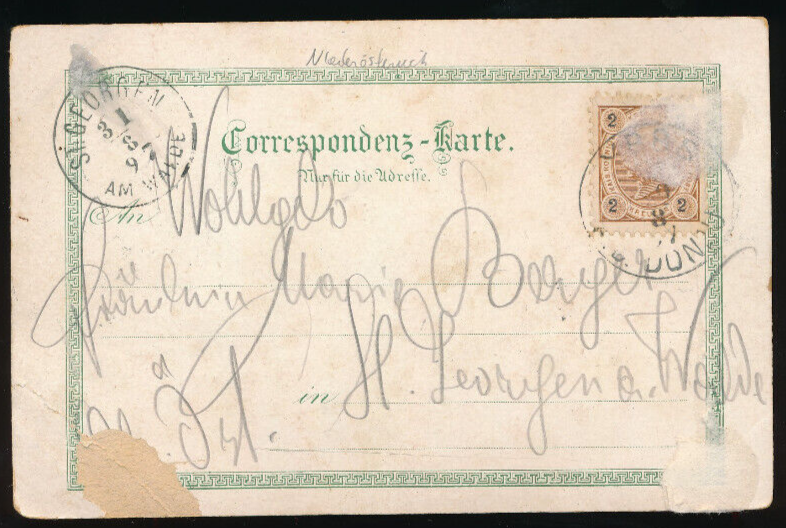 Niederösterreich
ST. GEORGEN
AM WALDE
31
8
9
2
2 2
8
DONAU
Correspondenz-Karte.
Nur für die Adresse.
An Wohlgeb
Fräulein Marie Berger
in St. Georgen a. Walde
Öst.